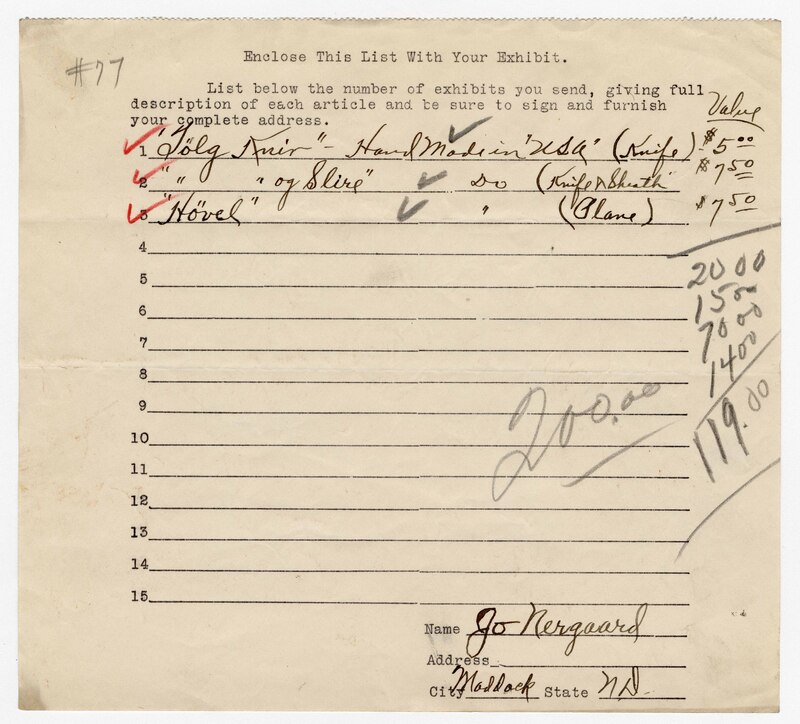 #77
Enclose This List With Your Exhibit.
List below the number of exhibits you send, giving full
description of each article and be sure to sign and furnish
your complete address.
Value
1 "Tölg Kniv" - Hand Made in "USA" (Knife) $5 00
2 " " " og Slire" Do (Knife & Sheath $7 50
3 "Hövel" " (Plane) $7 50
4
20 00
5
15 00
6
70 00
7
14 00
8
119.00
9
200.00
10
11
12
13
14
15
Name Jo Nergaard
Address
City Maddock State ND.